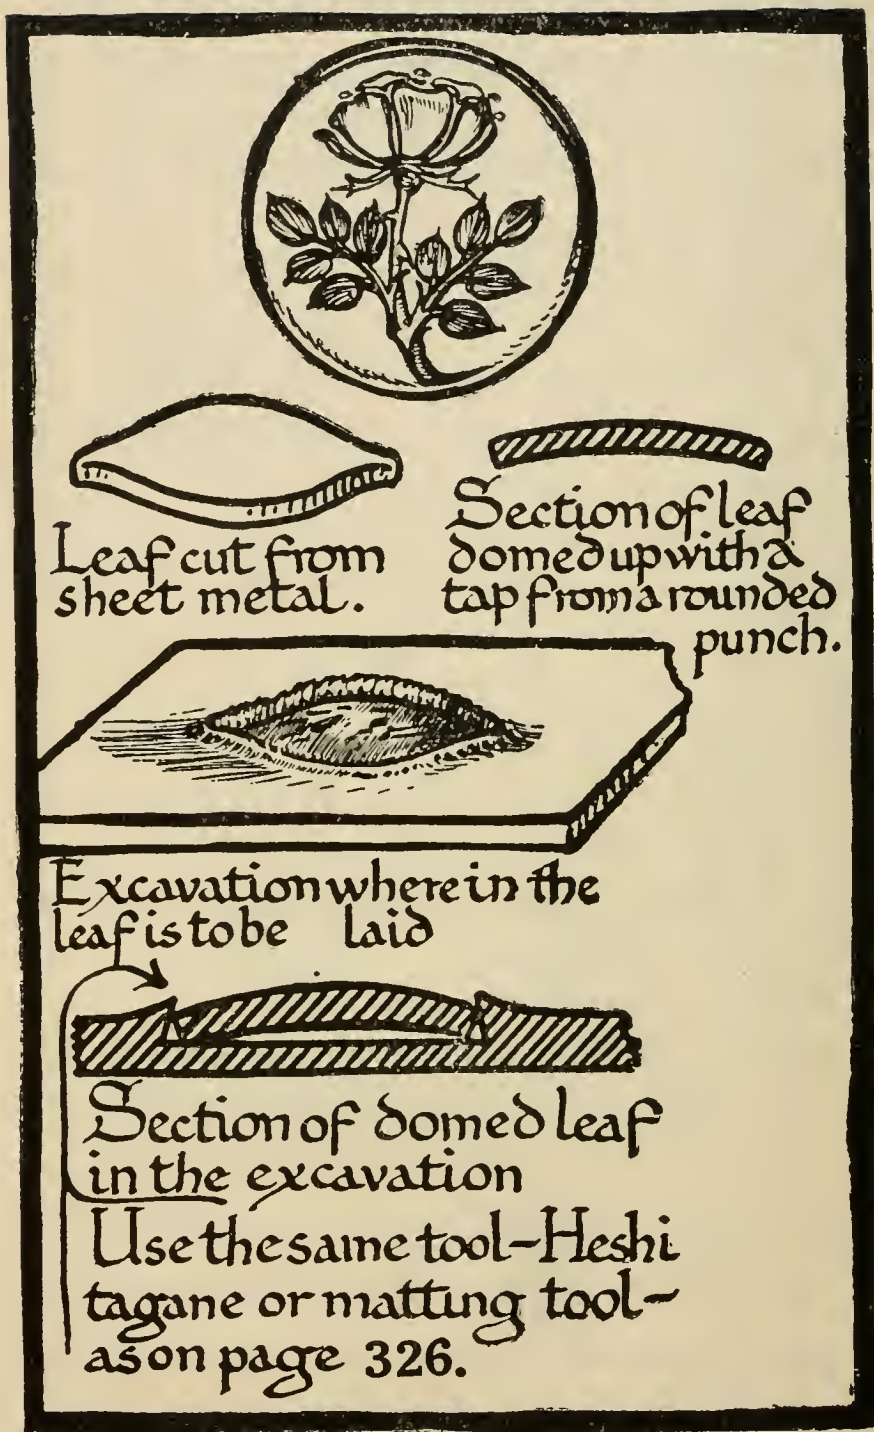 Leaf cut from
sheet metal.
Section of leaf
domed up with a
tap from a rounded
punch.
Excavation wherein the
leaf is to be laid
Section of domed leaf
in the excavation
Use the same tool-Heshi
tagane or matting tool-
as on page 326.